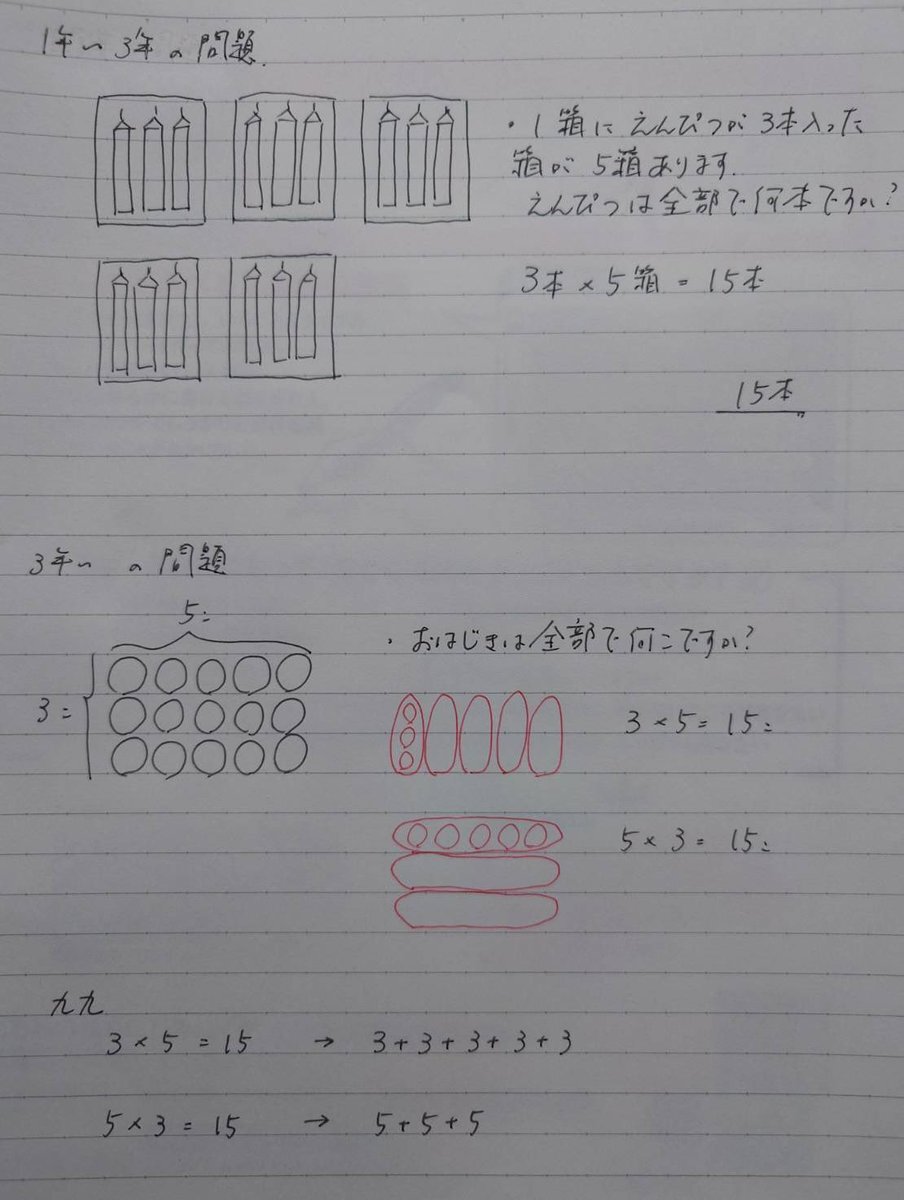 1年〜3年の問題.
・1箱にえんぴつが3本入った
箱が5箱あります.
えんぴつは全部で何本ですか?
3本×5箱=15本
15本
3年〜の問題
5こ
3こ
・おはじきは全部で何こですか?
3×5=15こ
5×3=15こ
九九
3×5=15 → 3+3+3+3+3
5×3=15 → 5+5+5